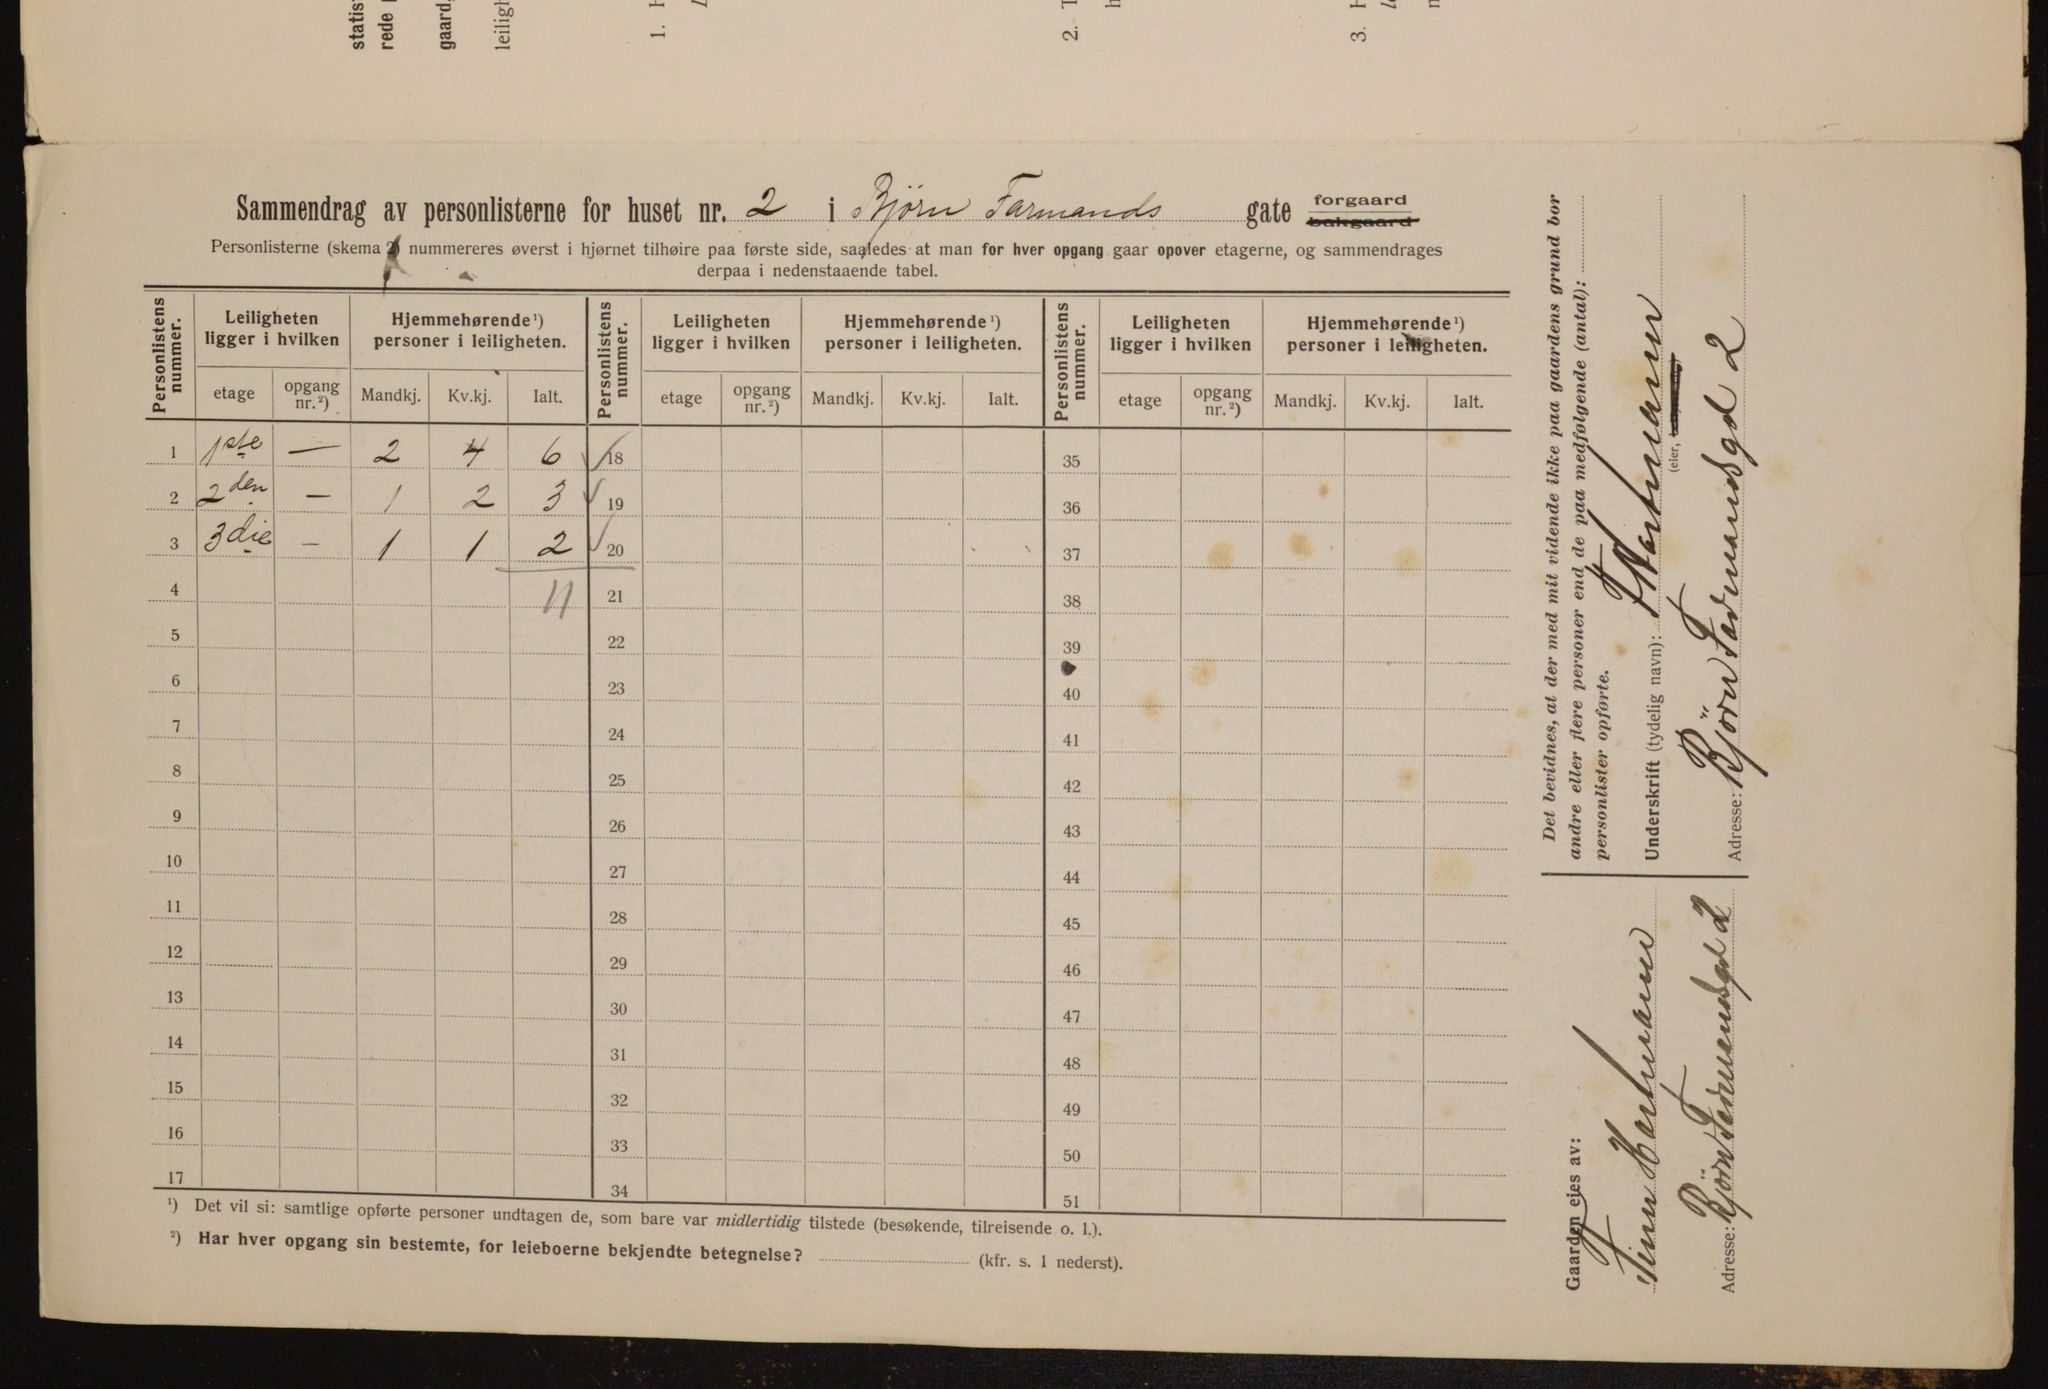 statis
rede
gaard
leiligh
1. H
2. T
3. H
Sammendrag av personlisterne for huset nr. 2 i Bjørn Farmands gate forgaard
bakgaard
Personlisterne (skema 2) nummereres øverst i hjørnet tilhøire paa første side, saaledes at man for hver opgang gaar opover etagerne, og sammendrages
derpaa i nedenstaaende tabel.
Personlistens nummer. Leiligheten ligger i hvilken Hjemmehørende ¹) personer i leiligheten. Personlistens nummer. Leiligheten ligger i hvilken Hjemmehørende ¹) personer i leiligheten. Personlistens nummer. Leiligheten ligger i hvilken Hjemmehørende ¹) personer i leiligheten.
etage opgang nr. ²) Mandkj. Kv.kj. Ialt. etage opgang nr. ²) Mandkj. Kv.kj. Ialt. etage opgang nr. ²) Mandkj. Kv.kj. Ialt.
1 1ste — 2 4 6 18 35
2 2den — 1 2 3 19 36
3 3die — 1 1 2 20 37
4 11 21 38
5 22 39
6 23 40
7 24 41
8 25 42
9 26 43
10 27 44
11 28 45
12 29 46
13 30 47
14 31 48
15 32 49
16 33 50
17 34 51
¹) Det vil si: samtlige opførte personer undtagen de, som bare var midlertidig tilstede (besøkende, tilreisende o. l.).
²) Har hver opgang sin bestemte, for leieboerne bekjendte betegnelse? (kfr. s. 1 nederst).
Det bevidnes, at der med mit vidende ikke paa gaardens grund bor
andre eller flere personer end de paa medfølgende (antal):
personlister opførte.
Underskrift (tydelig navn): F Hartmann
(eier,
Adresse: Bjørn Farmandsgd 2
Gaarden eies av:
Finn Hartmann
Adresse: Bjørn Farmandsgd 2